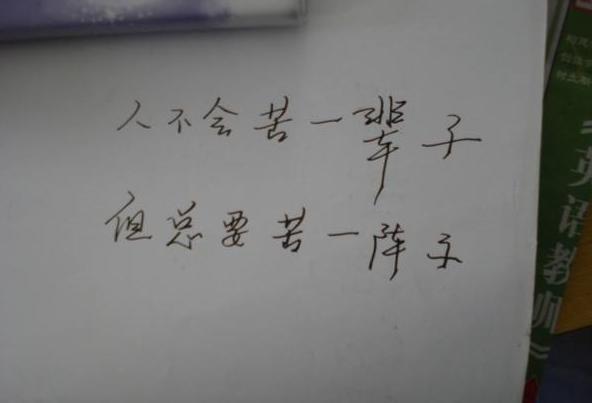 人不会苦一辈子
但总要苦一阵子
英语教师